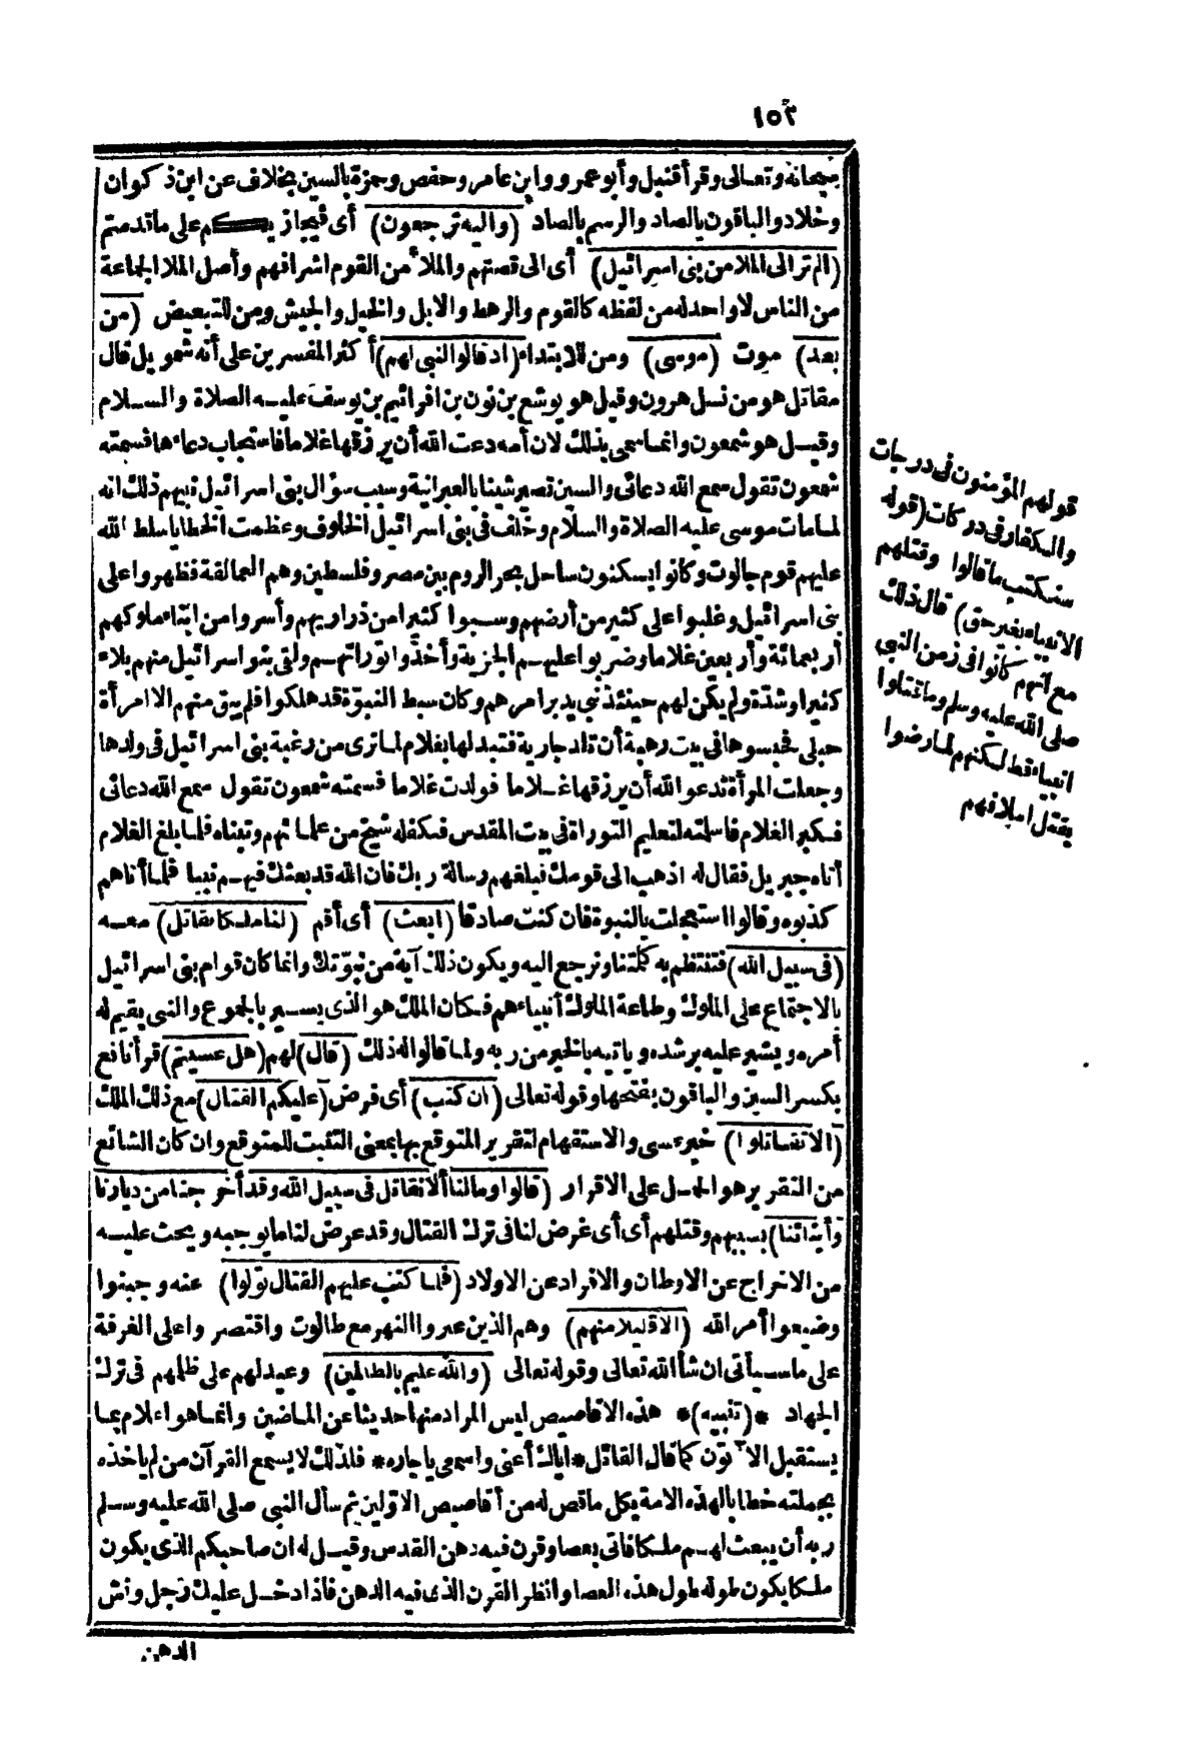 ١٥٣
سبحانه وتعالى وقرأ قنبل وأبو عمرو وابن عامر وحفص وحمزة بالسين بخلاف عن ابن ذكوان
وخلاد والباقون بالصاد والرسم بالصاد (واليه ترجعون) أى فيجازيكم على ما قدمتم
(الم تر الى الملا من بنى اسرائيل) أى الى قصتهم والملأ من القوم اشرافهم وأصل الملا الجماعة
من الناس لا واحد له من لفظه كالقوم والرهط والابل والخيل والجيش ومن للتبعيض (من
بعد) موت (موسى) ومن للابتداء (اذ قالوا لنبى لهم) أكثر المفسرين على أنه شمويل قال
مقاتل هو من نسل هرون وقيل هو يوشع بن نون بن افرائيم بن يوسف عليه الصلاة والسلام
وقيل هو شمعون وانما سمى بذلك لان أمه دعت الله أن يرزقها غلاما فاستجاب دعاءها فسمته
شمعون تقول سمع الله دعائى والسين تصير شينا بالعبرانية وسبب سؤال بنى اسرائيل نبيهم ذلك انه
لما مات موسى عليه الصلاة والسلام وخلف فى بنى اسرائيل الخلوف وعظمت الخطايا سلط الله
عليهم قوم جالوت وكانوا يسكنون ساحل بحر الروم بين مصر وفلسطين وهم العمالقة فظهروا على
بنى اسرائيل وغلبوا على كثير من أرضهم وسبوا كثيرا من ذراريهم وأسروا من ابناء ملوكهم
أربعمائة وأربعين غلاما وضربوا عليهم الجزية وأخذوا توراتهم ولقى بنو اسرائيل منهم بلاء
كثيرا وشدّة ولم يكن لهم حينئذ نبى يدبر امرهم وكان سبط النبوّة قد هلكوا فلم يبق منهم الا امرأة
حبلى فحبسوها فى بيت رهبة أن تلد جارية فتبدلها بغلام لما ترى من رغبة بنى اسرائيل فى ولدها
وجعلت المرأة تدعو الله أن يرزقها غلاما فولدت غلاما فسمته شمعون تقول سمع الله دعائى
فكبر الغلام فاسلمته لتعليم التوراة فى بيت المقدس فكفله شيخ من علمائهم وتبناه فلما بلغ الغلام
أتاه جبريل فقال له اذهب الى قومك فبلغهم رسالة ربك فان الله قد بعثك فيهم نبيا فلما أتاهم
كذبوه وقالوا استعجلت بالنبوة فان كنت صادقا (ابعث) أى أقم (لنا ملكا نقاتل) معه
(فى سبيل الله) فتنتظم به كلمتنا ونرجع اليه ويكون ذلك آية من نبوّتك وانما كان قوام بنى اسرائيل
بالاجتماع على الملوك وطاعة الملوك أنبياءهم فكان الملك هو الذى يسير بالجموع والنبى يقيم له
أمره ويشير عليه برشده ويأتيه بالخبر من ربه ولما قالوا له ذلك (قال) لهم (هل عسيتم) قرأ نافع
بكسر السين والباقون بفتحها وقوله تعالى (ان كتب) أى فرض (عليكم القتال) مع ذلك الملك
(الا تقاتلوا) خبر عسى والاستفهام لتقرير المتوقع بها بمعنى التثبت للمتوقع وان كان الشائع
من التقرير هو الحمل على الاقرار (قالوا وما لنا ألا نقاتل فى سبيل الله وقد أخرجنا من ديارنا
وأبنائنا) بسبيهم وقتلهم أى أى غرض لنا فى ترك القتال وقد عرض لنا ما يوجبه ويحث عليه
من الاخراج عن الاوطان والافراد عن الاولاد (فلما كتب عليهم القتال تولوا) عنه وجبنوا
وضيعوا أمر الله (الا قليلا منهم) وهم الذين عبروا النهر مع طالوت واقتصروا على الغرفة
على ما سيأتى ان شاء الله تعالى وقوله تعالى (والله عليم بالظالمين) وعيد لهم على ظلمهم فى ترك
الجهاد *(تنبيه)* هذه الاقاصيص ليس المراد منها حديثا عن الماضين وانما هو اعلام بما
يستقبل الآتون كما قال القائل *اياك أعنى واسمعى ياجاره* فلذلك لا يسمع القرآن من لم يأخذه
بجملته خطابا لهذه الامة بكل ما قص له من أقاصيص الاوّلين ثم سأل النبى صلى الله عليه وسلم
ربه أن يبعث لهم ملكا فاتى بعصا وقرن فيه دهن القدس وقيل له ان صاحبكم الذى يكون
ملكا يكون طوله طول هذه العصا وانظر القرن الذى فيه الدهن فاذا دخل عليك رجل ونش
الدهن
قولهم المؤمنون فى درجات
والكفار فى دركات (قوله
سنكتب ما قالوا وقتلهم
الانبياء بغير حق) قال ذلك
مع انهم كانوا فى زمن النبى
صلى الله عليه وسلم وما قتلوا
انبياء قط لكنهم لما رضوا
بقتل اسلافهم